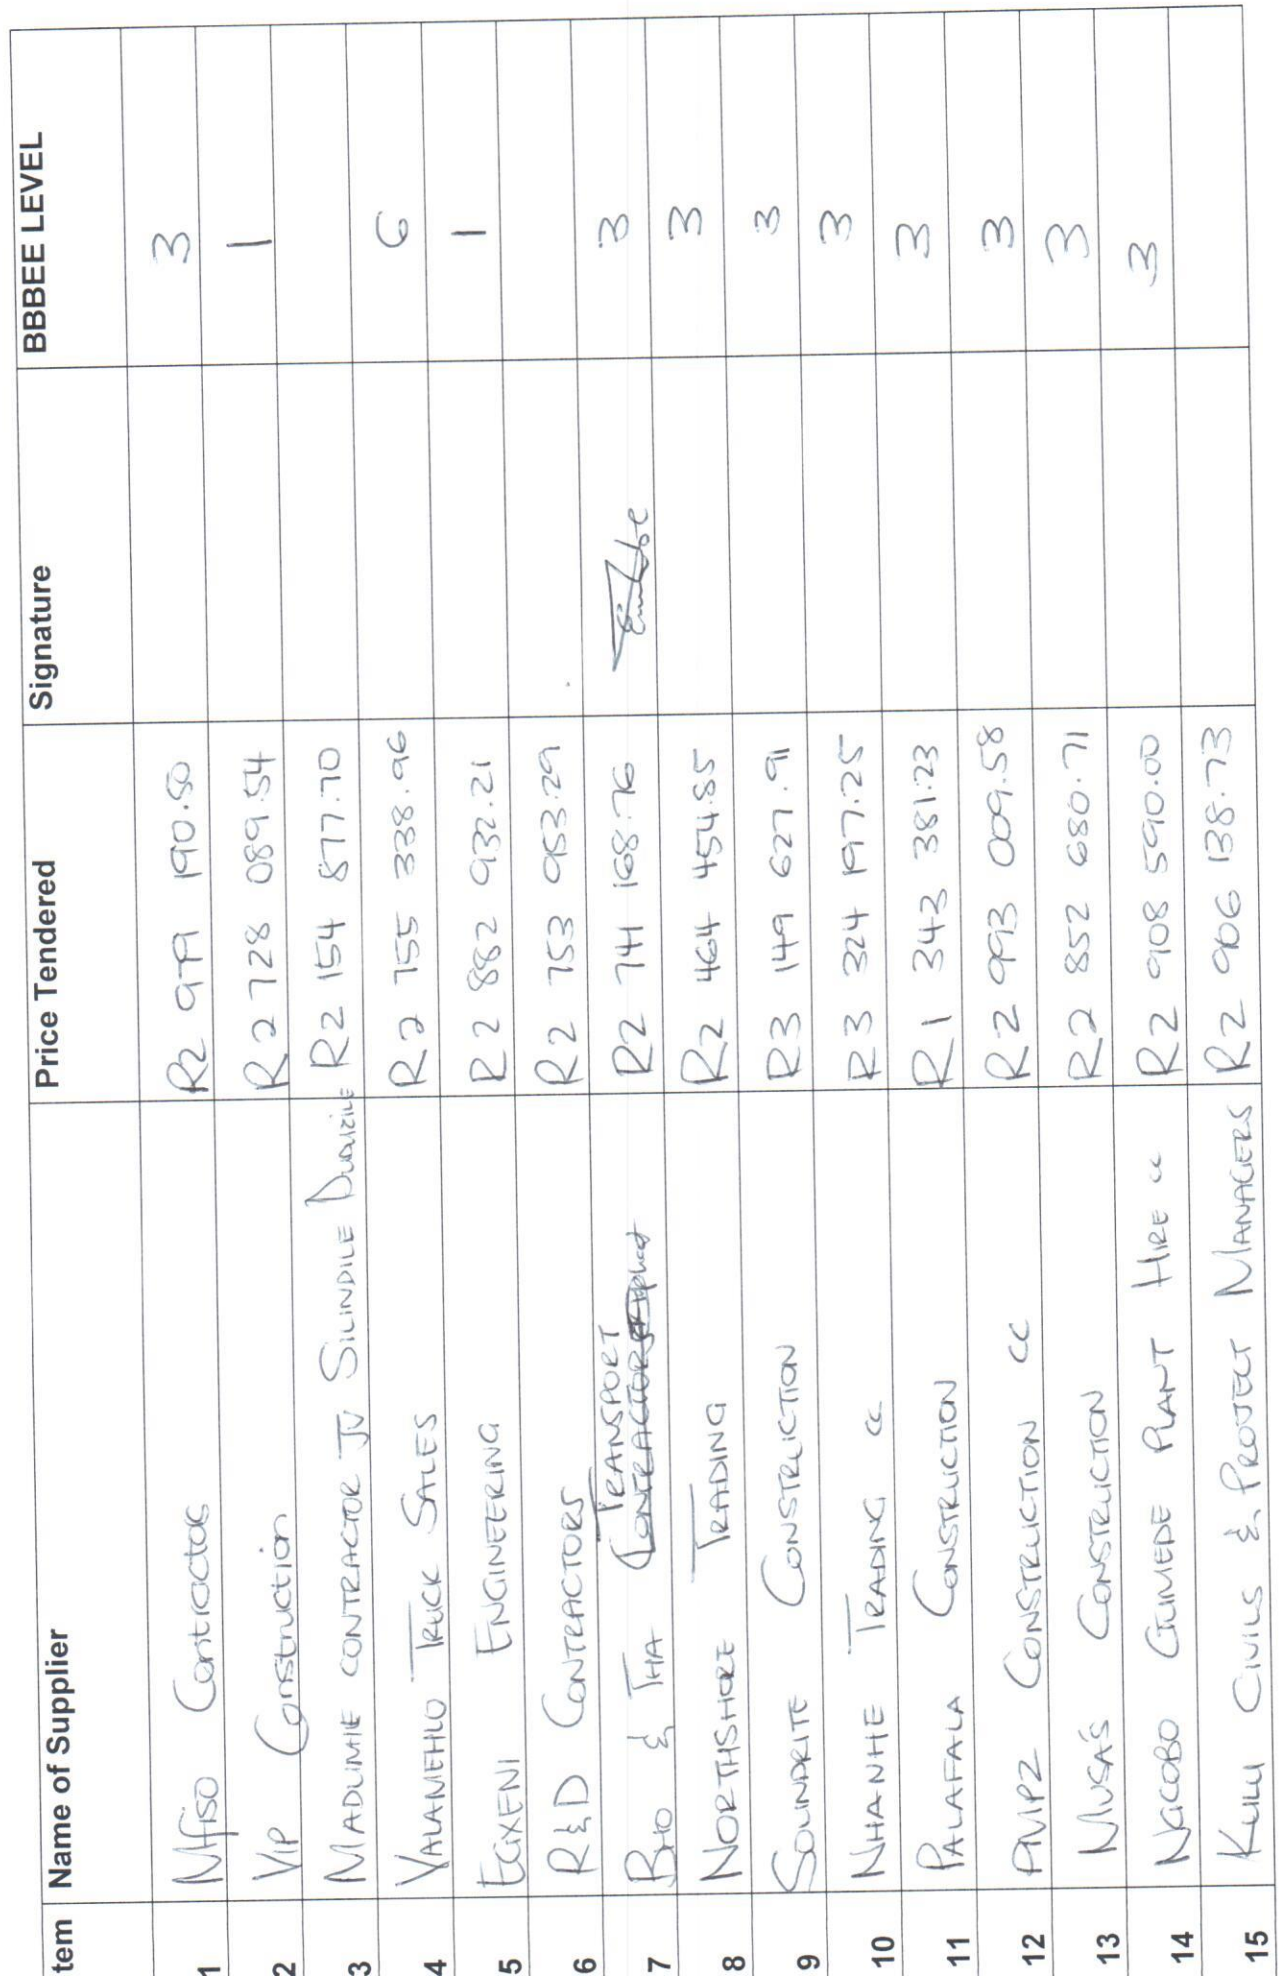 tem Name of Supplier Price Tendered Signature BBBEE LEVEL
1 Mfiso Contractors R2 979 190.50 3
2 VIP Construction R2 728 089.54 1
3 MADUMIE CONTRACTOR JV SILINDILE R2 154 877.70
4 VALAMEHLO TRUCK SALES R2 755 338.96 6
5 EGXENI ENGINEERING R2 882 932.21 1
6 R&D CONTRACTORS R2 753 953.29
TRANSPORT
7 BHO & THA CONTRACTORS R2 741 168.76 3
8 NORTHSHORE TRADING R2 464 454.85 3
9 SOUNDRITE CONSTRUCTION R3 149 627.91 3
10 NHANHE TRADING cc R3 324 197.25 3
11 PALAFALA CONSTRUCTION R1 343 381.23 3
12 CONSTRUCTION CC R2 993 009.58 3
13 MUSA'S CONSTRUCTION R2 852 680.71 3
14 NGCOBO GUMEDE PLANT HIRE cc R2 908 590.00 3
15 KULU CIVILS & PROJECT MANAGERS R2 906 138.73